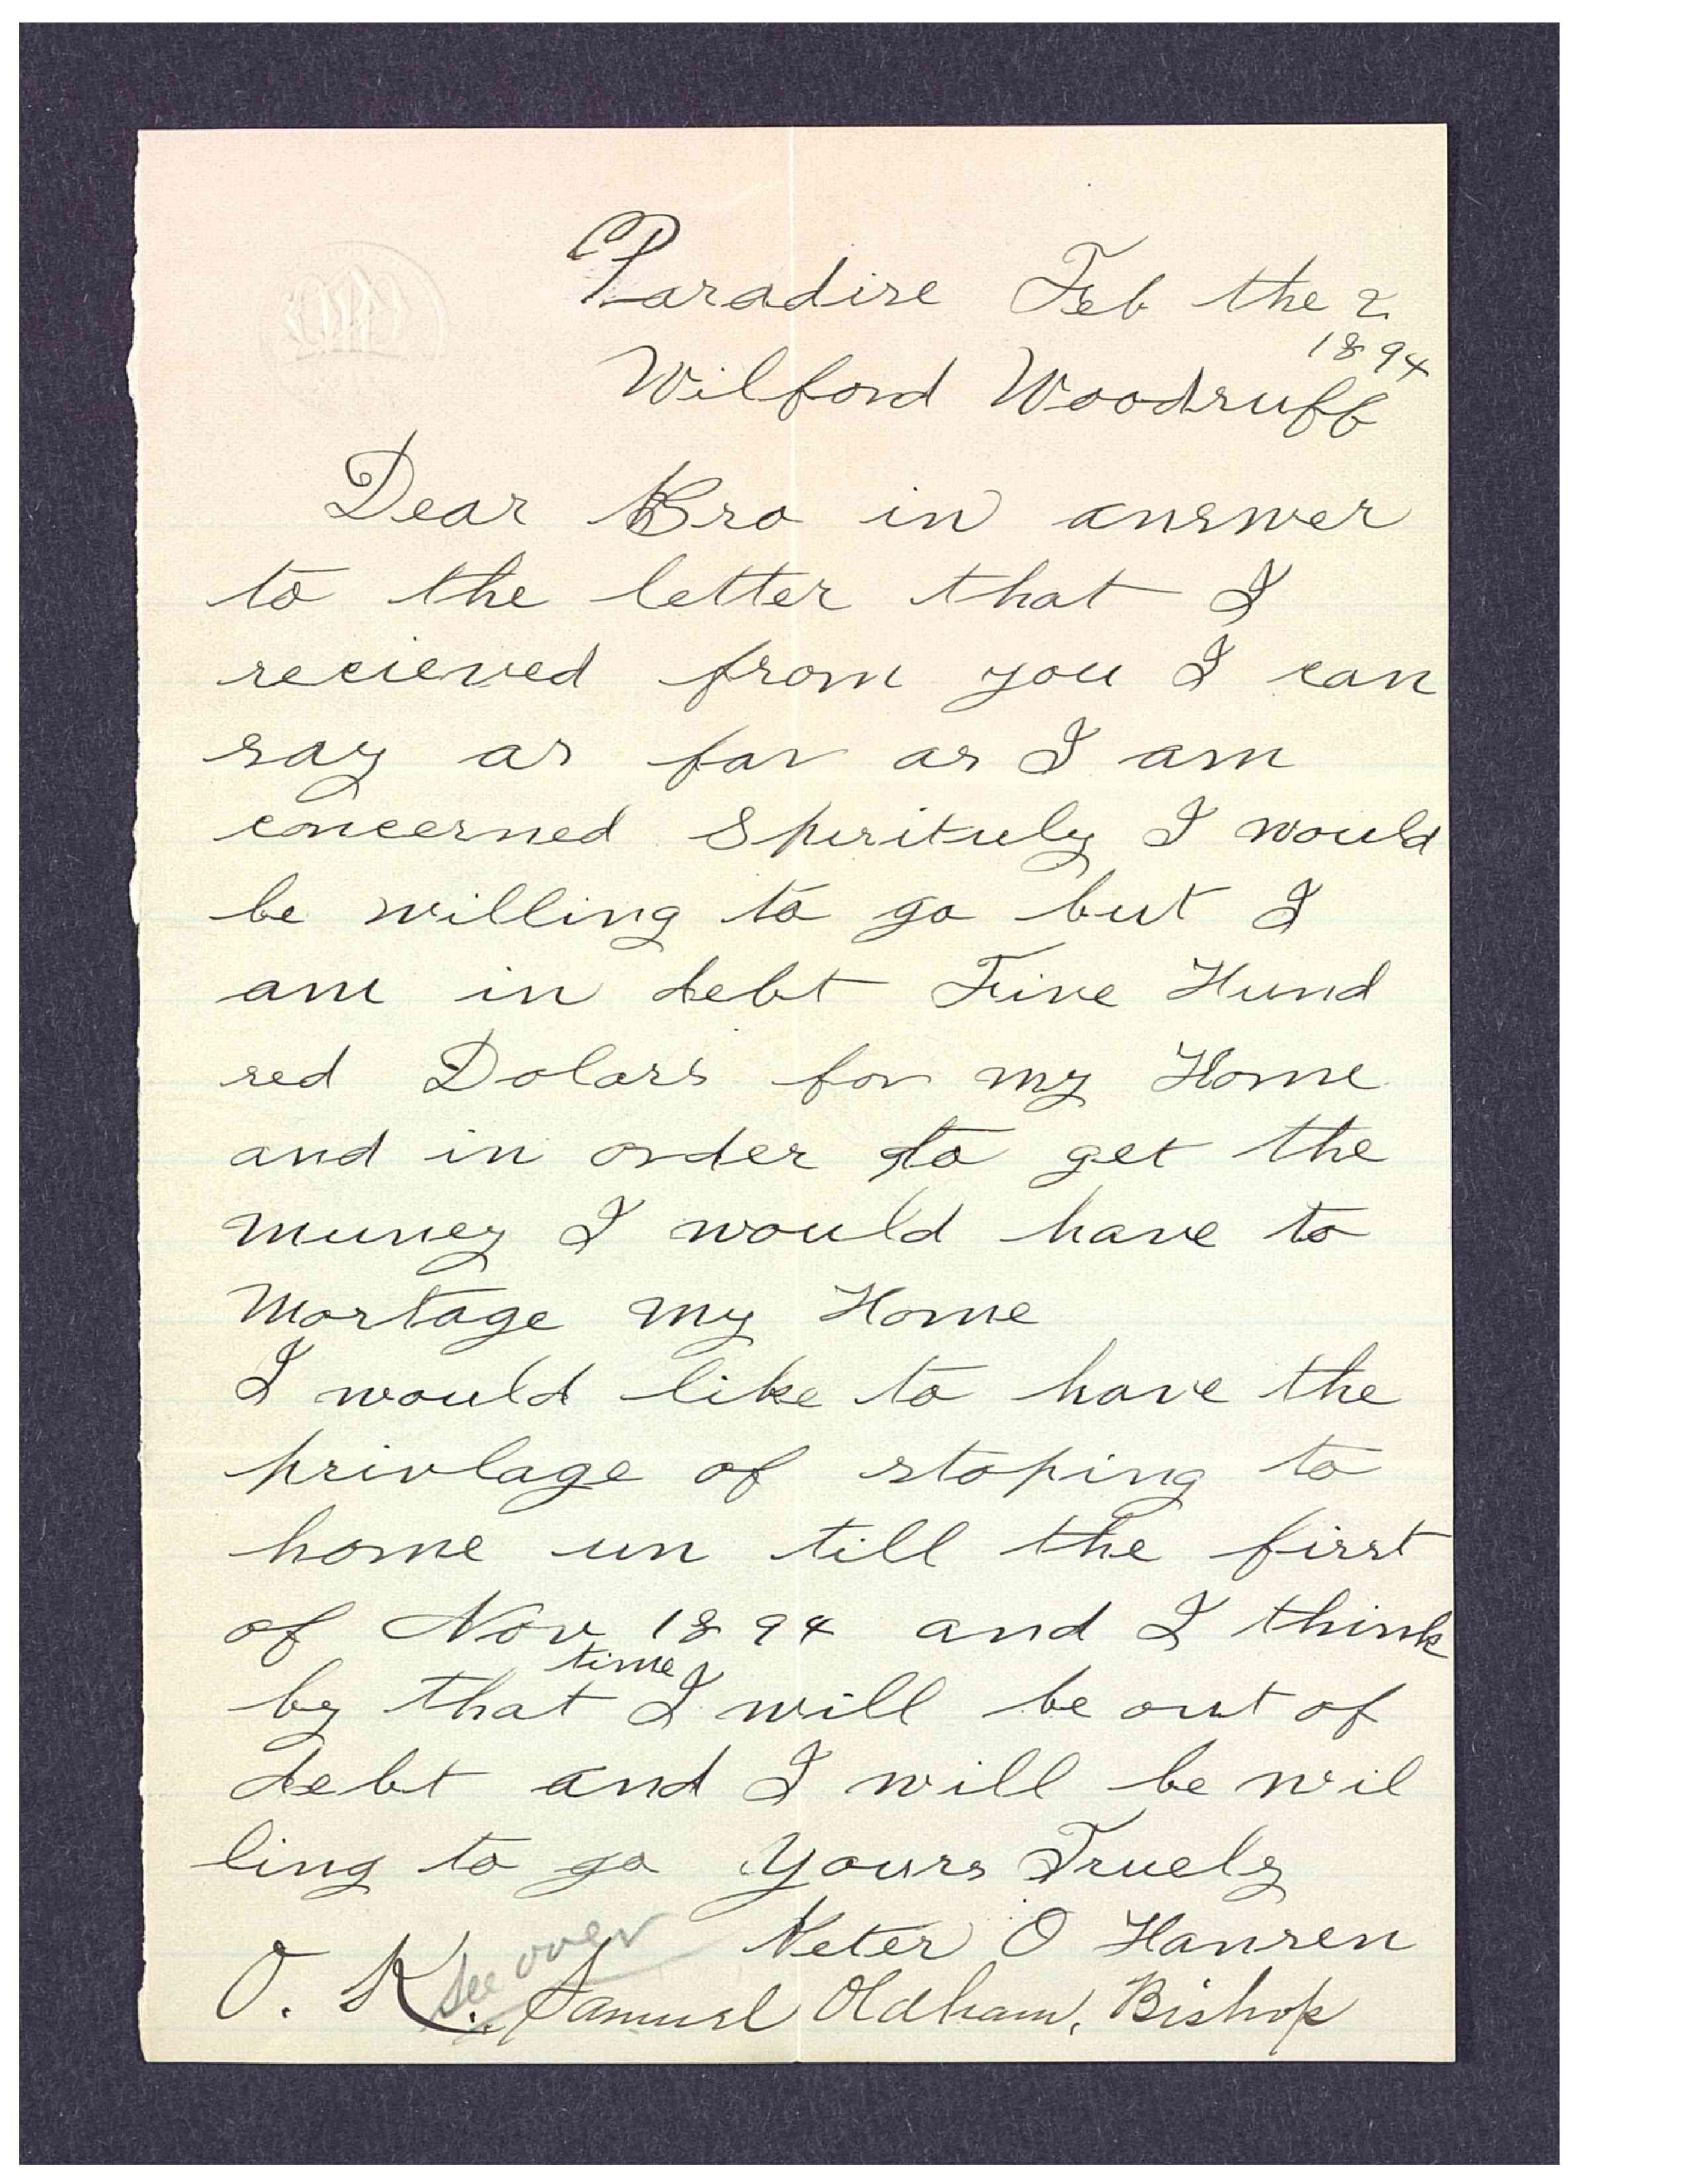 Paradise Feb the 2
1894
Wilford Woodruff
Dear Bro in answer
to the letter that I
recieved from you I can
say as far as I am
concerned Spirituly I would
be willing to go but I
am in debt Five Hund
red Dolars for my Home
and in order to get the
muney I would have to
Mortage my Home
I would like to have the
privlage of stoping to
home un till the first
of Nov 1894 and I think
time
by that I will be out of
debt and I will be wil
ling to go Yours Truely
Peter O Hansen
See over
O. K. Samuel Oldham, Bishop